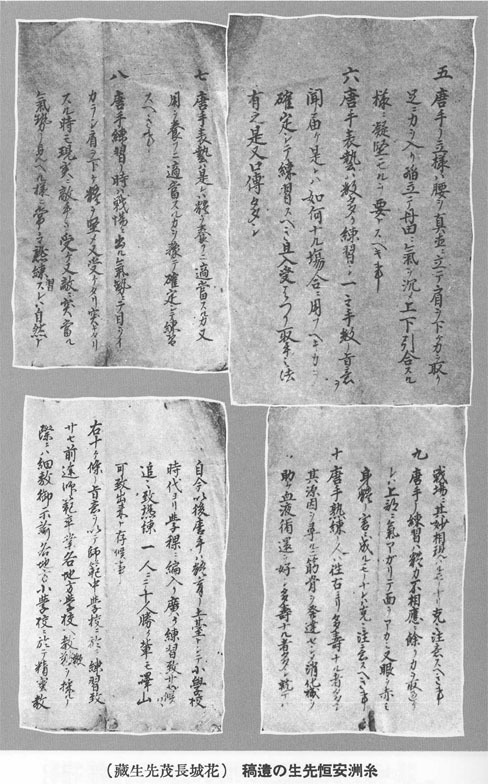 五 唐手ノ立様ハ腰ヲ真直ニ立テ肩ヲ下ケ力ヲ取リ
足ニ力ヲ入レ踏立テ丹田ニ氣ヲ沈メ上下引合スル
様ニ凝堅メルヲ要スヘキ事
六 唐手表藝ハ数多ク練習シ一々手数ノ旨意ヲ
聞届ケ是レハ如何ナル場合ニ用フヘキカヲ
確定シテ練習スヘシ且入受ハツシ取手ノ法
有之是又口傳多シ
七 唐手表藝ハ是レハ体ヲ養フニ適當スルカ又
用ヲ養フニ適當スルカヲ豫テ確定シテ練習
スヘキ事
八 唐手練習ノ時ハ戦場ニ出ル氣勢ニテ目ヲイ
カラシ肩ヲ下ケ体ヲ堅メ又受ケタリ突キタリ
スル時モ現実ニ敵手ヲ受ケ又敵ニ突當ル
氣勢ノ見ヘル様ニ常々熟練スレハ自然ト
戦場ニ其妙相現ハルモノナリ克々注意スヘキ事
九 唐手ノ練習ハ体力不相應ニ餘リ力ヲ取過キ
レハ上部ニ氣アガリテ面ヲアカミ又眼ヲ赤ミ
身体ノ害ニ成ルモノナレハ克々注意スヘキ事
十 唐手熟練ノ人ハ往古ヨリ多壽ナル者多シ
其源因ヲ尋ルニ筋骨ヲ発達セシメ消化機ヲ
助ケ血液循環ヲ好クシ多壽ナル者多シ就テハ
自今以後唐手ハ体育ノ土臺トシテ小學校
時代ヨリ學課ニ編入リ廣ク練習致サセ候ハヽ
追々致熟練一人ニテ十人勝ノ輩モ澤山
可致出来ト存候事
右十ヶ條ノ旨意ヲ以テ師範中學校ニ於テ練習致
サセ前途師範ヲ卒業各地方學校ヘ教鞭ヲ採ルノ
際ニハ細敷御示諭各地方小學校ニ於テ精密教
糸洲安恒先生の遺稿（花城長茂先生藏）